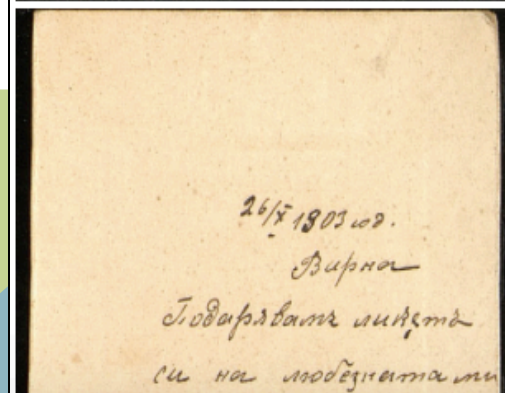 26/X 1903 год.
Варна
Подарявамъ ликътъ
си на любезната ми